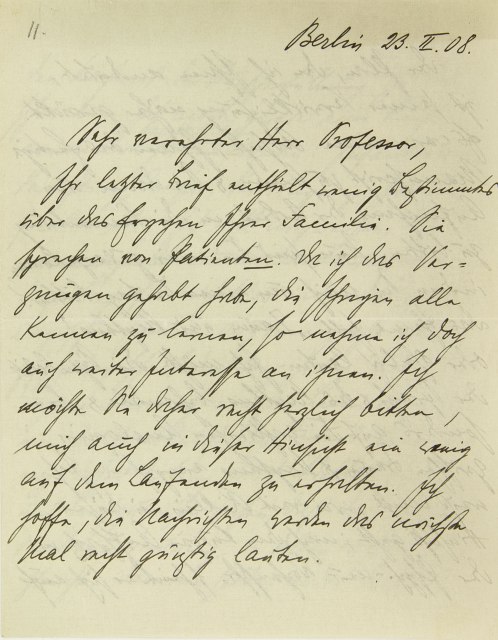 11.
Berlin 23. II. 08.
Sehr verehrter Herr Professor,
Ihr letzter Brief enthielt wenig Bestimmtes
über das Ergehen Ihrer Familie. Sie
sprechen von Patienten. Da ich das Ver=
gnügen gehabt habe, die Ihrigen alle
kennen zu lernen, so nehme ich doch
auch weiter Interesse an ihnen. Ich
möchte Sie daher recht herzlich bitten,
mich auch in dieser Hinsicht ein wenig
auf dem Laufenden zu erhalten. Ich
hoffe, die Nachrichten werden das nächste
Mal recht günstig lauten.